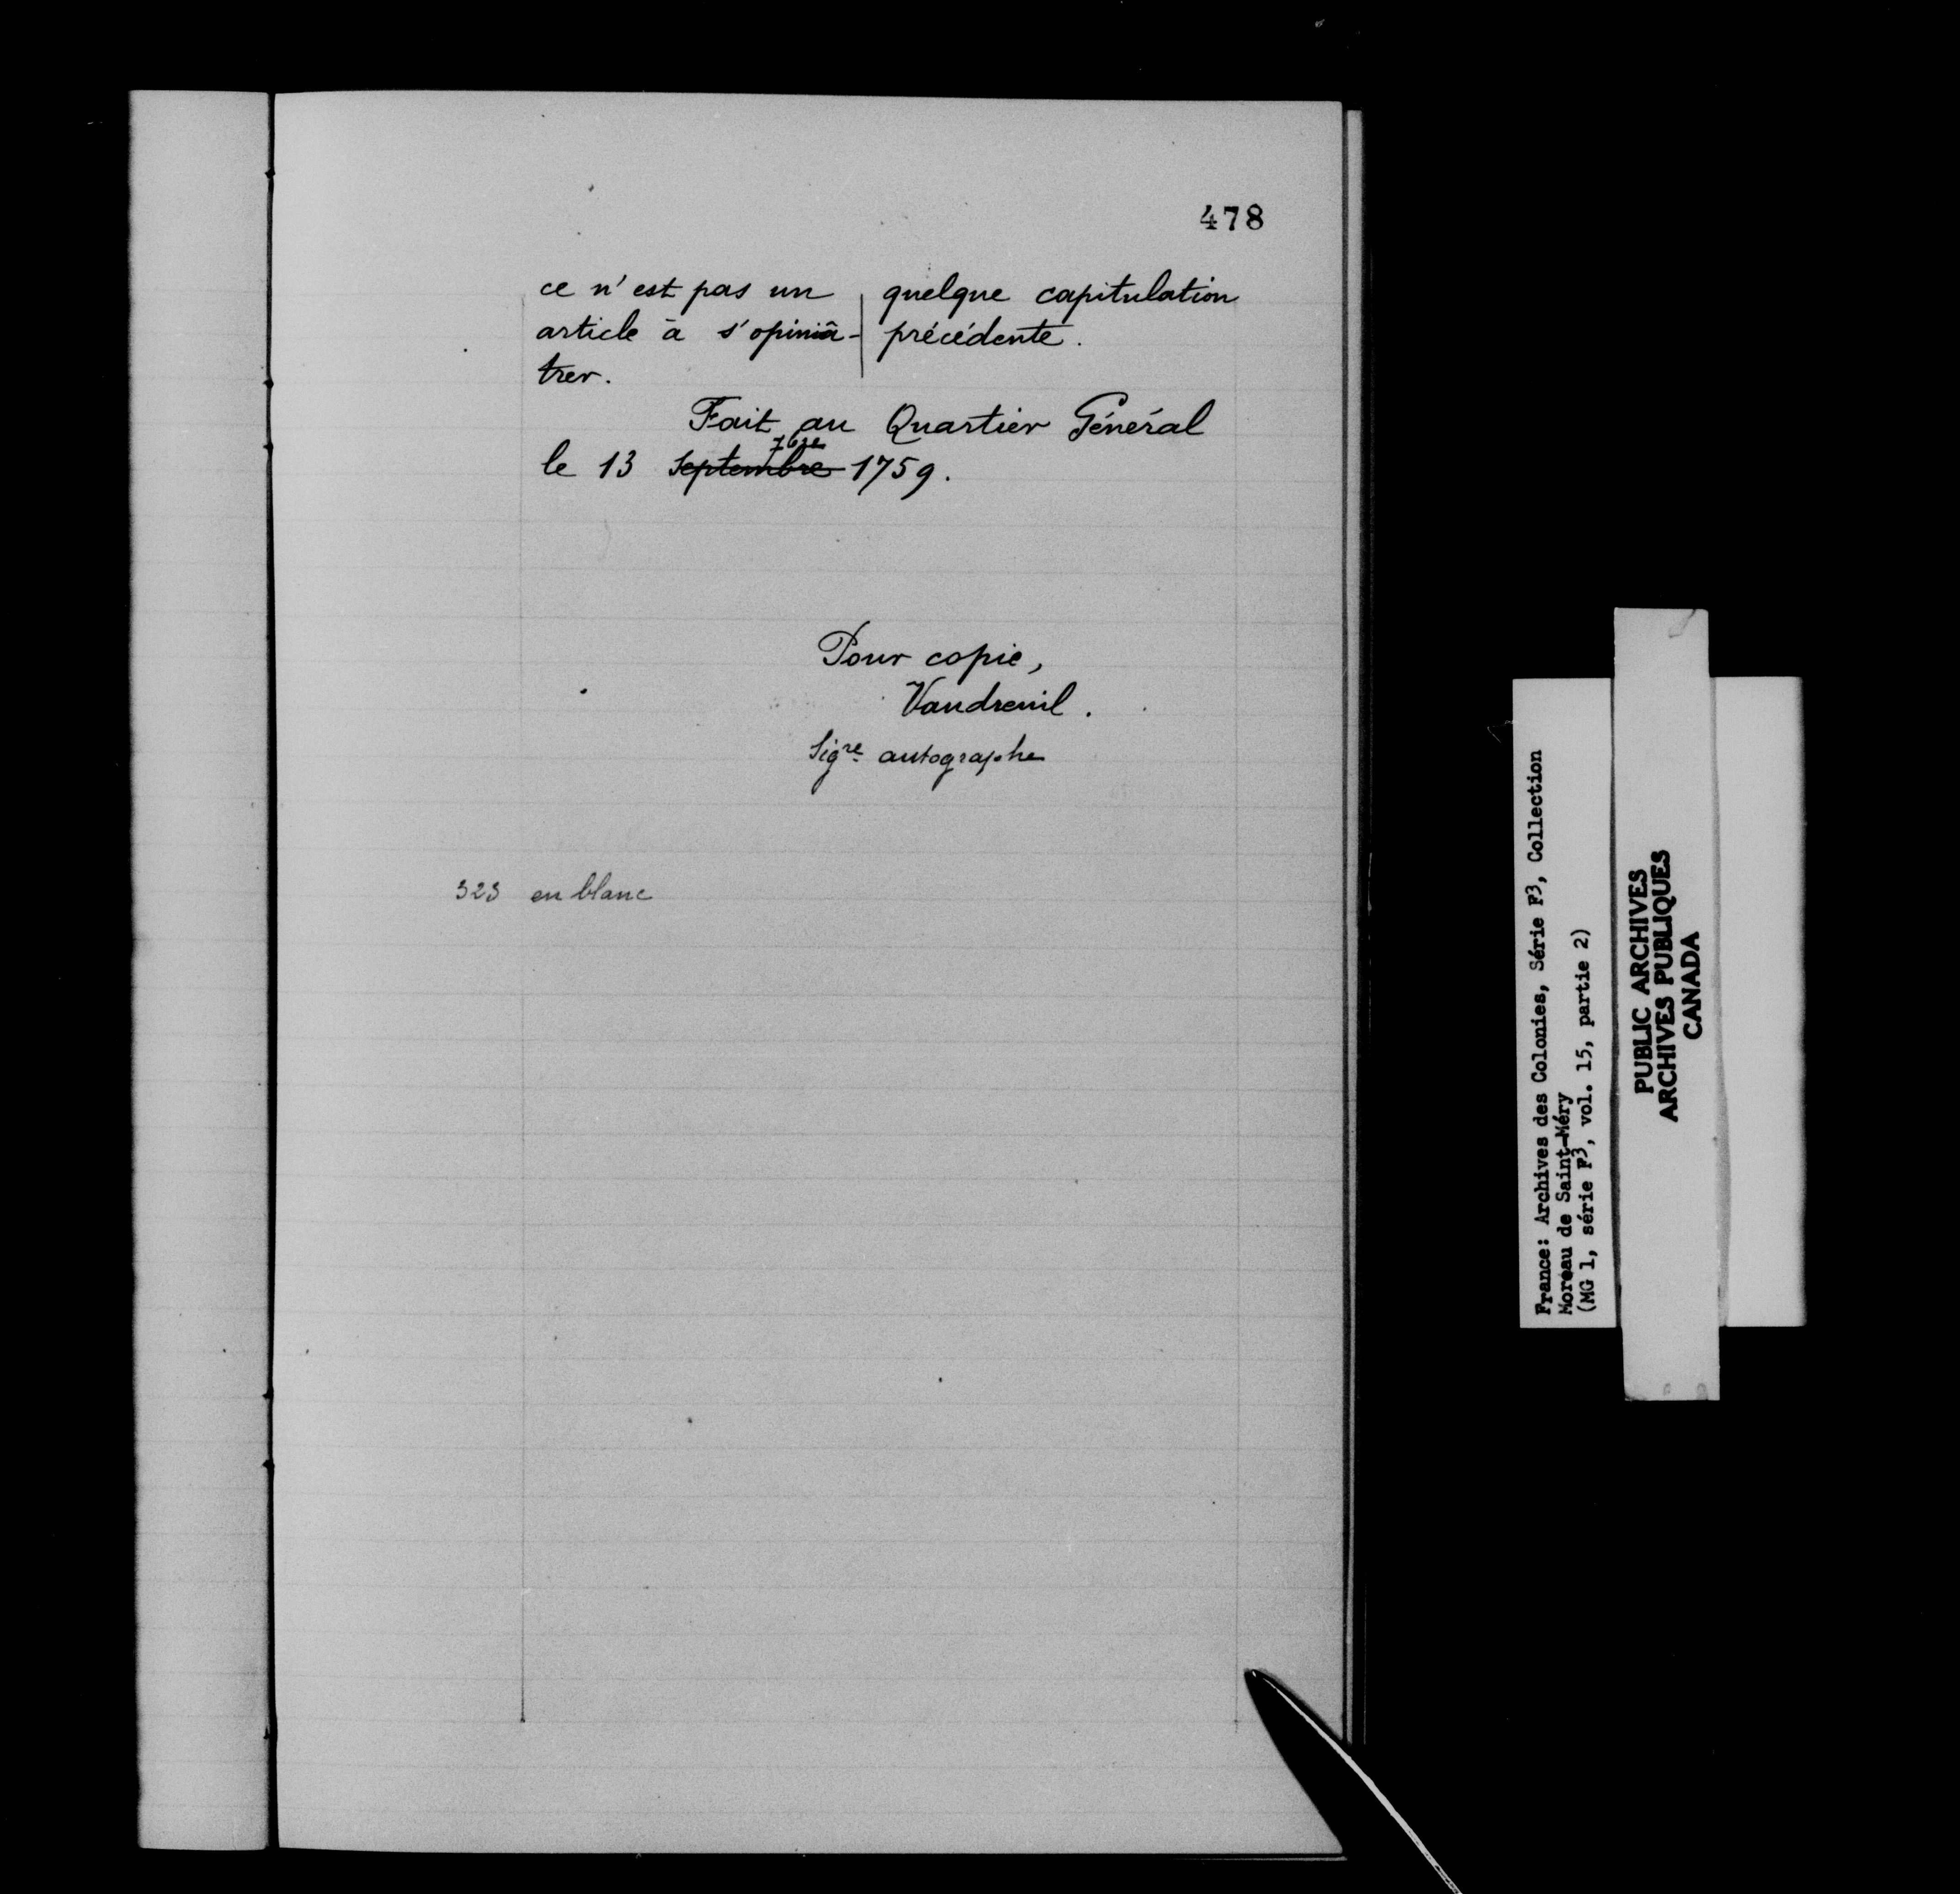 478
ce n'est pas un
article à s'opiniâ-
trer.
quelque capitulation
précédente.
Fait au Quartier Général
7bre
le 13 Septembre 1759.
Pour copie,
Vaudreuil.
Sigre autographe
323 en blanc
France: Archives des Colonies, Série F3, Collection
Moreau de Saint-Méry
(MG 1, série F3, vol. 15, partie 2)
PUBLIC ARCHIVES
ARCHIVES PUBLIQUES
CANADA